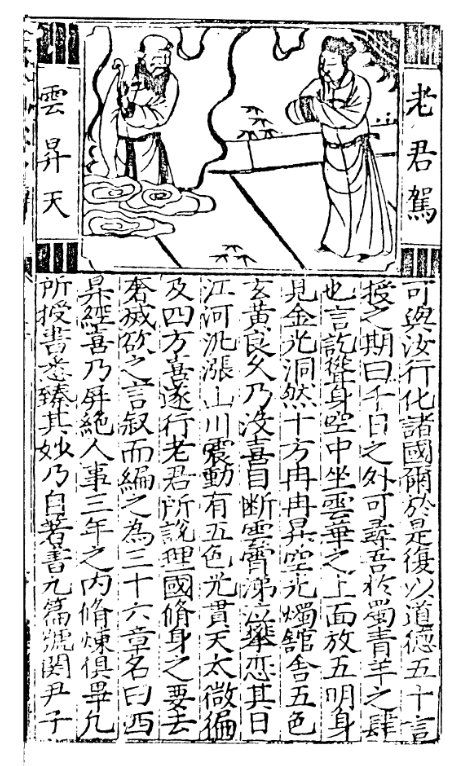 老君駕
雲昇天
可與汝行化諸國爾於是復以道德五十言
授之期曰千日之外可尋吾於蜀青羊之肆
也言訖聳身空中坐雲華之上面放五明身
見金光洞然十方冉冉昇空光燭舘舍五色
玄黃良久乃没喜目断雲霄涕泣攀恋其日
江河汎漲山川震動有五色光貫天太微徧
及四方喜遂行老君所說理國脩身之要去
奢滅欲之言叙而編之為三十六章名曰西
昇經喜乃屏絕人事三年之内脩煉俱畢凢
所授書悉臻其妙乃自著書九篇號関尹子